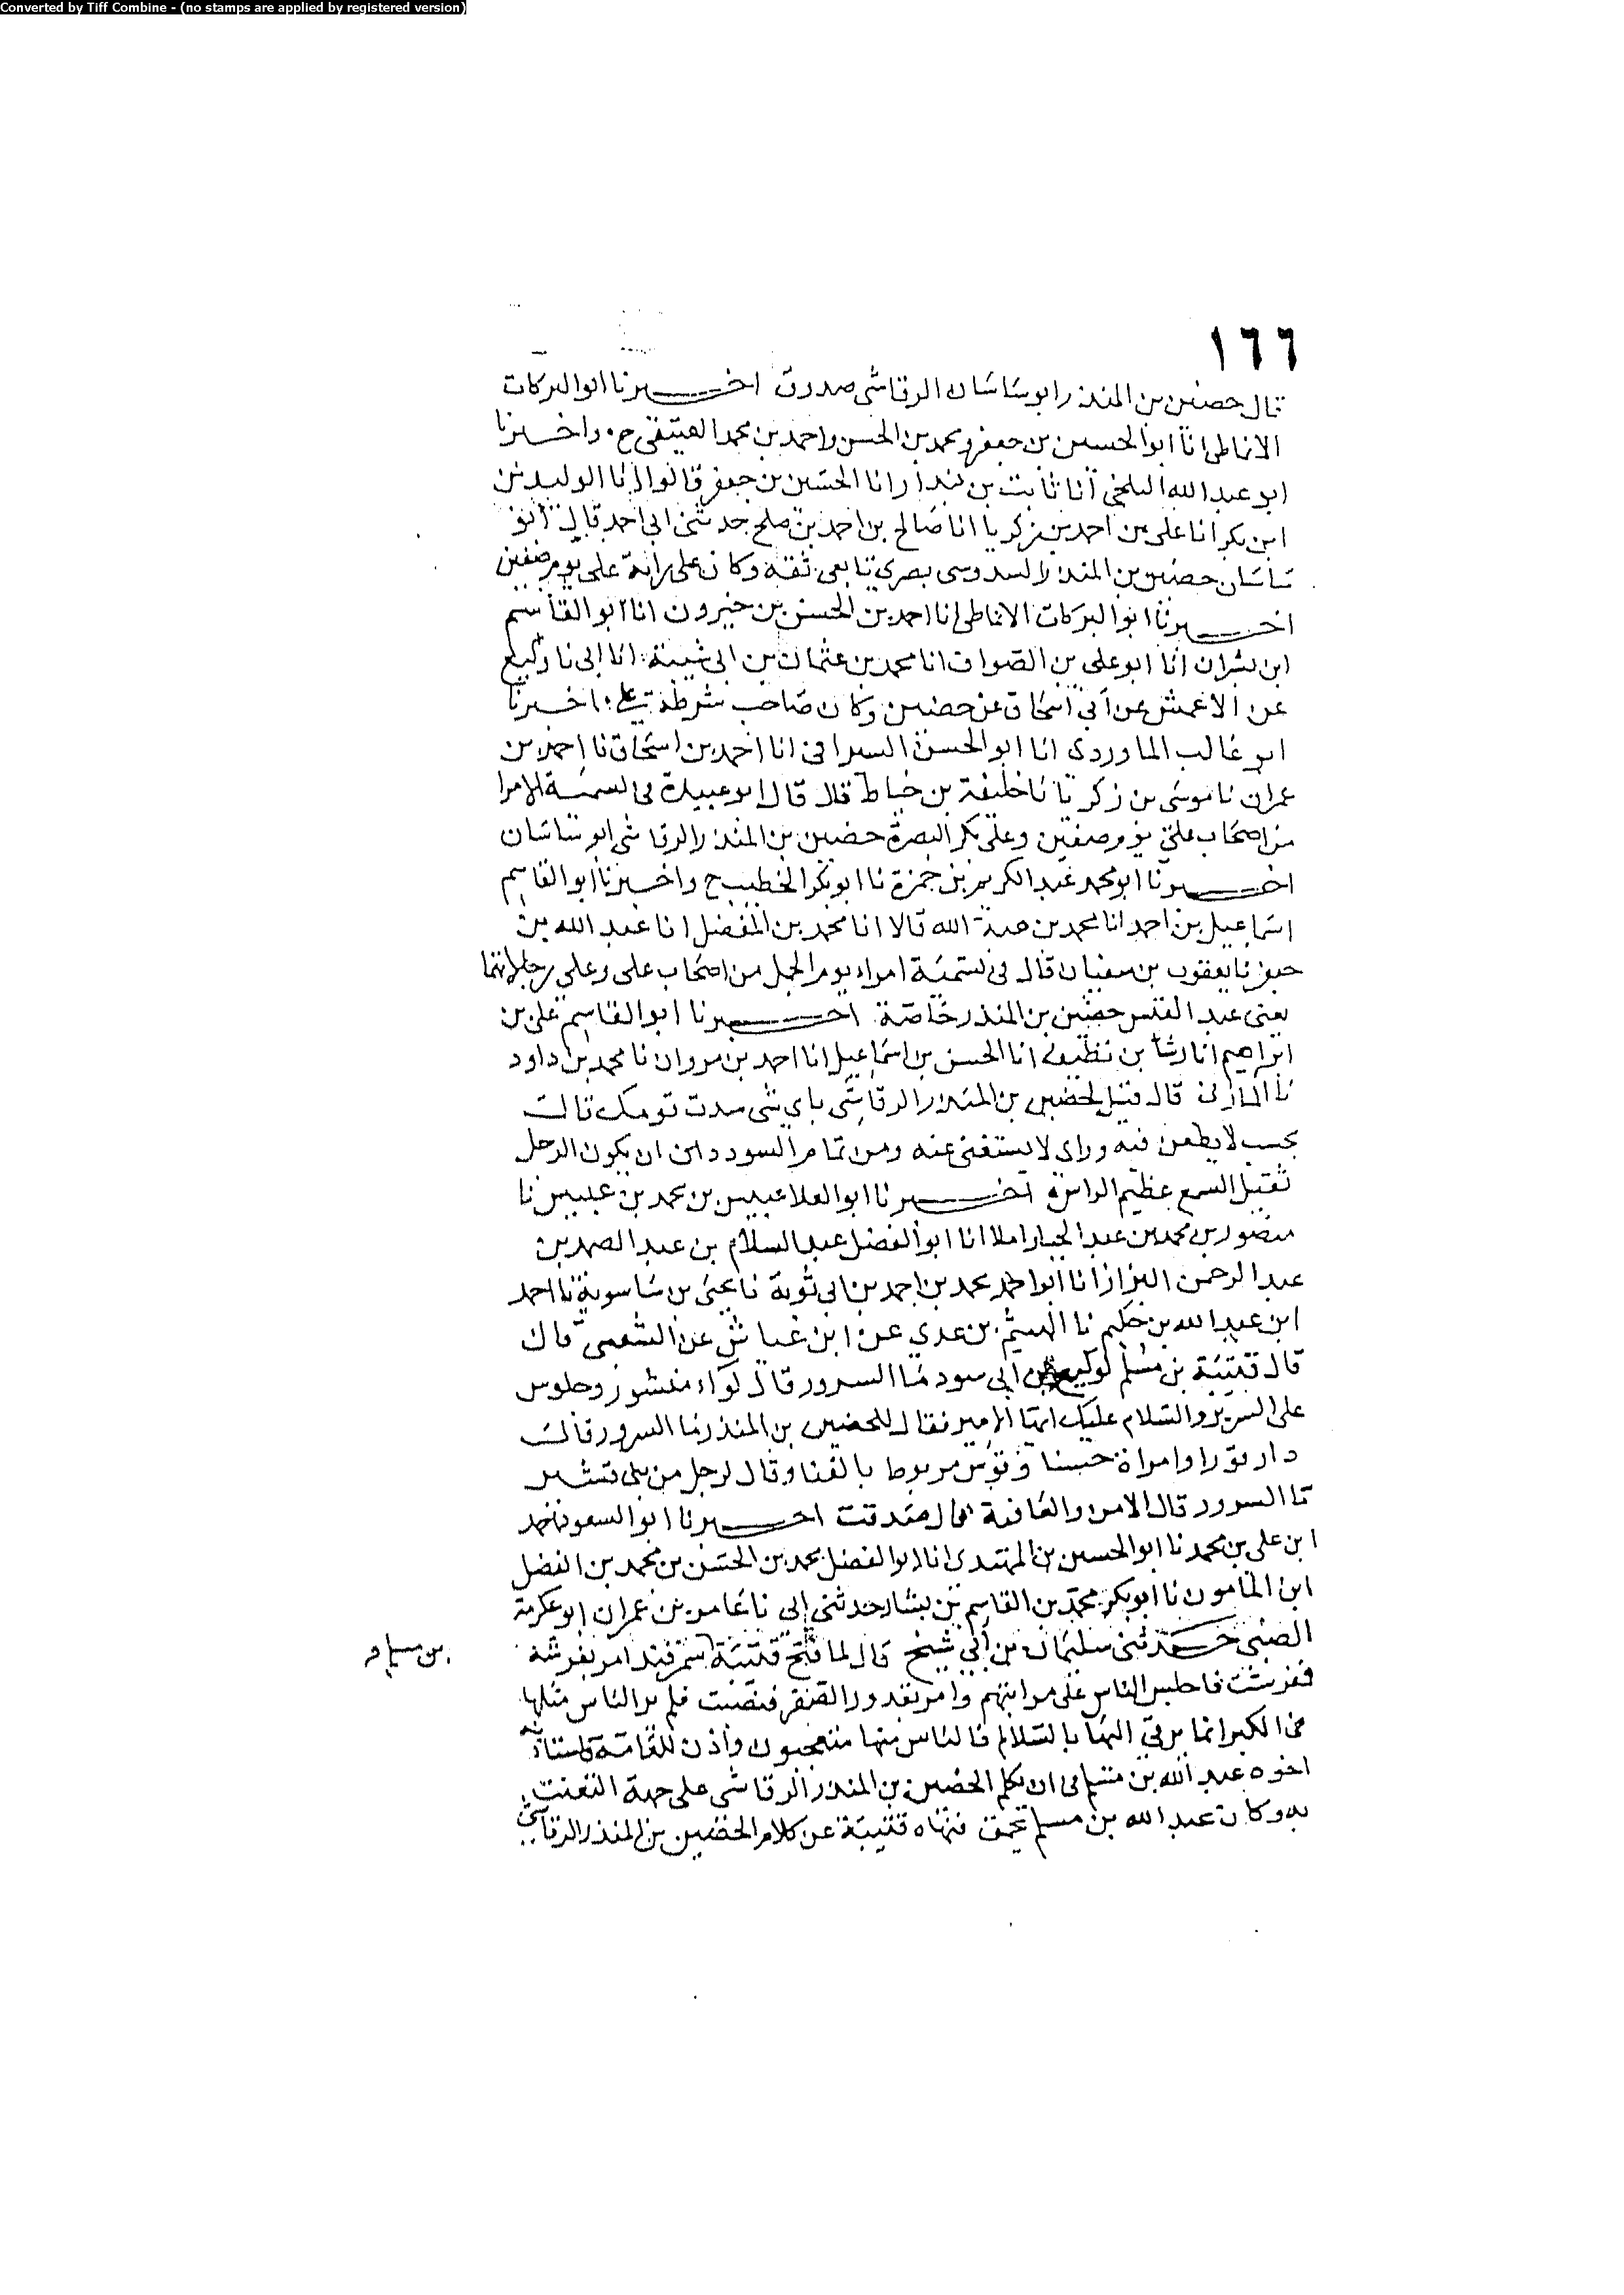 Converted by Tiff Combine - (no stamps are applied by registered version)
١٦٦
قال حضين بن المنذر ابو ساسان الرقاشي صدوق اخبرنا ابو البركات
الانماطي انا ابو الحسين بن جعفر ومحمد بن الحسن واحمد بن محمد العتيقي ح واخبرنا
ابو عبد الله البلخي انا ثابت بن بندار انا الحسين بن جعفر قالوا انا الوليد بن
ابن بكر انا علي بن احمد بن زكريا انا صالح بن احمد بن صلح حدثني ابي احمد قال ابو
ساسان حضين بن المنذر السدوسي بصري تابعي ثقة وكان على راية علي يوم صفين
اخبرنا ابو البركات الانماطي انا احمد بن الحسن بن خيرون انا ابو القاسم
ابن بشران انا ابو علي بن الصواف انا محمد بن عثمان بن ابي شيبة انا ابي نا وكيع
عن الاعمش عن ابي اسحاق عن حضين وكان صاحب شرطة علي اخبرنا
ابو غالب الماوردي انا ابو الحسن السيرافي انا احمد بن اسحاق نا احمد بن
عمران نا موسى بن زكريا نا خليفة بن خياط قال قال ابو عبيدة في تسمية الامرا
من اصحاب علي يوم صفين وعلى بكر البصرة حضين بن المنذر الرقاشي ابو ساسان
اخبرنا ابو محمد عبد الكريم بن حمزة نا ابو بكر الخطيب ح واخبرنا ابو القاسم
اسماعيل بن احمد انا محمد بن هبة الله قالا انا محمد بن المفضل انا عبد الله بن
جعفر نا يعقوب بن سفيان قال في تسمية امراء يوم الجمل من اصحاب علي وعلى رجالاتها
يعني عبد القيس حضين بن المنذر خاصة اخبرنا ابو القاسم علي بن
ابراهيم انا رشا بن نظيف انا الحسن بن اسماعيل انا احمد بن مروان نا محمد بن داود
نا المازني قال قيل لحضين بن المنذر الرقاشي باي شي سدت قومك قال
بحسب لا يطعن فيه وراي لا يستغنى عنه ومن تمام السودد ان يكون الرجل
ثقيل السمع عظيم الراس اخبرنا ابو العلا عبيس بن محمد بن عبيس نا
منصور بن محمد بن عبد الجبار املا انا ابو الفضل عبد السلام بن عبد الصمد بن
عبد الرحمن البزاز انا ابو احمد محمد بن احمد بن ابي ثوبة نا يحيى بن ساسوية نا احمد
ابن عبد الله بن حكيم نا الهيثم بن عدي عن ابن عياش عن الشعبي قال
قال قتيبة بن مسلم لوكيع بن ابي سود ما السرور قال لواء منشور وجلوس
على السرير والسلام عليك ايها الامير فقال للحضين بن المنذر ما السرور قال
دار قورا وامراة حسنا وفرس مربوط بالفنا وقال لرجل من بني قشير
ما السرور قال الامن والعافية قال صدقت اخبرنا ابو السعود احمد
ابن علي بن محمد نا ابو الحسين بن المهتدي انا ابو الفضل محمد بن الحسن بن محمد بن الفضل
ابن المامون نا ابو بكر محمد بن القاسم بن بشار حدثني ابي نا عامر بن عمران ابو عكرمة
الضبي حدثني سليمان بن ابي شيخ قال لما فتح قتيبة سمرقند امر بفرشه
بن مسلم
ففرشت فاجلس الناس على مراتبهم وامر بقدور الصفر فنصبت فلم ير الناس مثلها
في الكبر انما يرقى اليها بالسلالم فالناس منها متعجبون واذن للعامة فاستاذنه
اخوه عبد الله بن مسلم في ان يكلم الحضين بن المنذر الرقاشي على جهة التعنت
به وكان عبد الله بن مسلم يحمق فنهاه قتيبة عن كلام الحضين بن المنذر الرقاشي